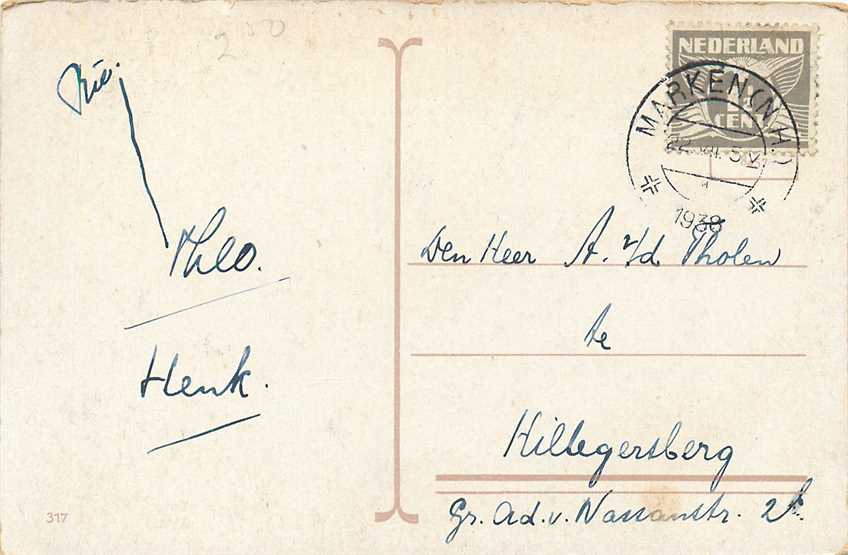 250
Rie.
Theo.
Henk.
317
NEDERLAND
CENT
MARKEN (N.H.)
1938
Den Heer A. v/d Tholen
te
Hillegersberg
Gr. Ad. v. Nassaustr. 2